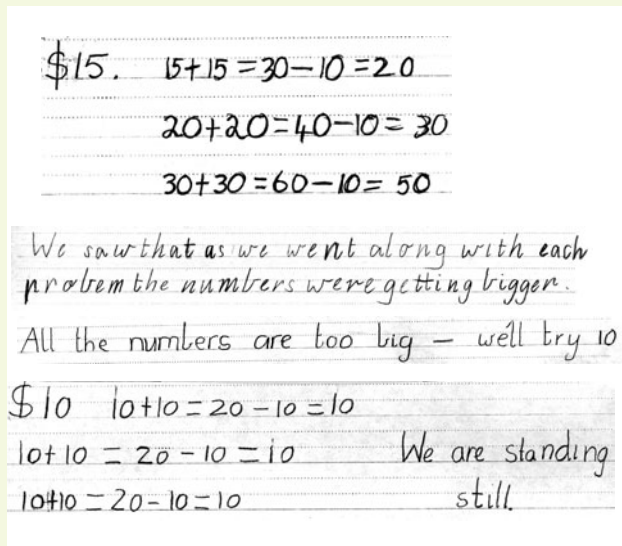 $15. 15+15=30-10=20
20+20=40-10=30
30+30=60-10=50
We saw that as we went along with each
probem the numbers were getting bigger.
All the numbers are too big – we'll try 10
$10 10+10=20-10=10
10+10=20-10=10 We are standing
10+10=20-10=10 still.